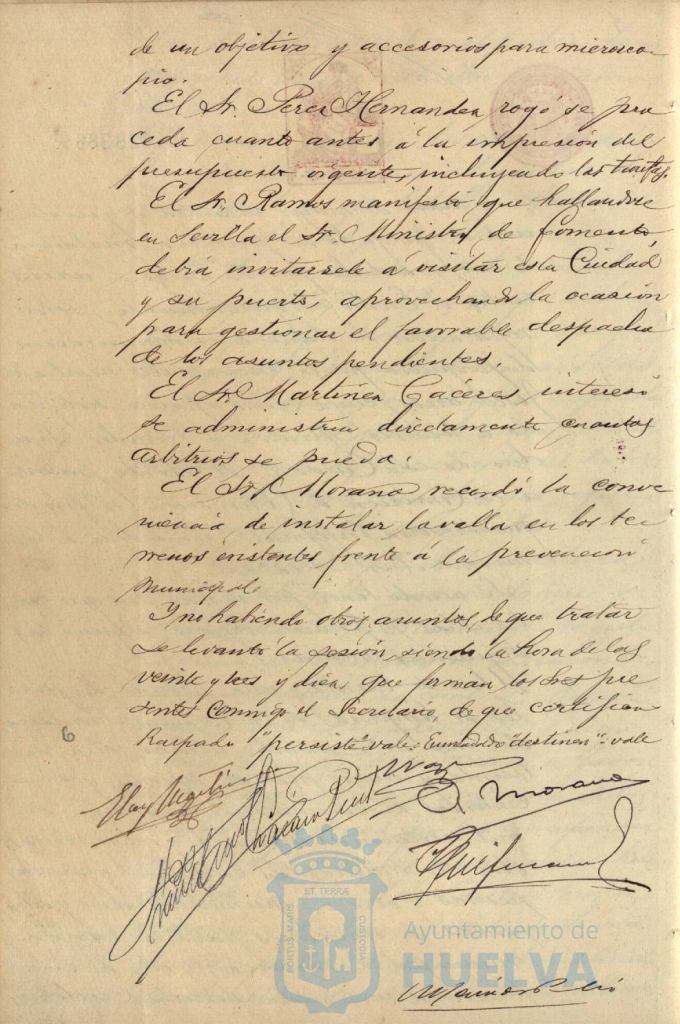 de un objetivo y accesorios para microsco
pio.
El Sr. Perez Hernandez, rogó se pro
ceda cuanto antes á la impresión del
presupuesto vigente, incluyendo las tarifas.
El Sr. Ramos manifestó que hallandose
en Sevilla el Sr. Ministro de Fomento,
debía invitarsele á visitar esta Ciudad
y su puerto, aprovechando la ocasión
para gestionar el favorable despacho
de los asuntos pendientes.
El Sr. Martinez Caceres interesó
se administren directamente cuantos
arbitrios se pueda.
El Sr. Moraña recordó la conve
niencia de instalar la valla en los te
rrenos existentes frente á la prevención
municipal.
Y no habiendo otros asuntos de que tratar
se levantó la sesión, siendo la hora de las
veinte y tres y diez, que firman los Sres pre
sentes conmigo el Secretario, de que certifico
Raspado "persiste" vale. Enmendado "destinen": vale
6
Eloy Martinez
Moraña
PORTUS MARIS ET TERRÆ CUSTODIA
Ayuntamiento de
HUELVA